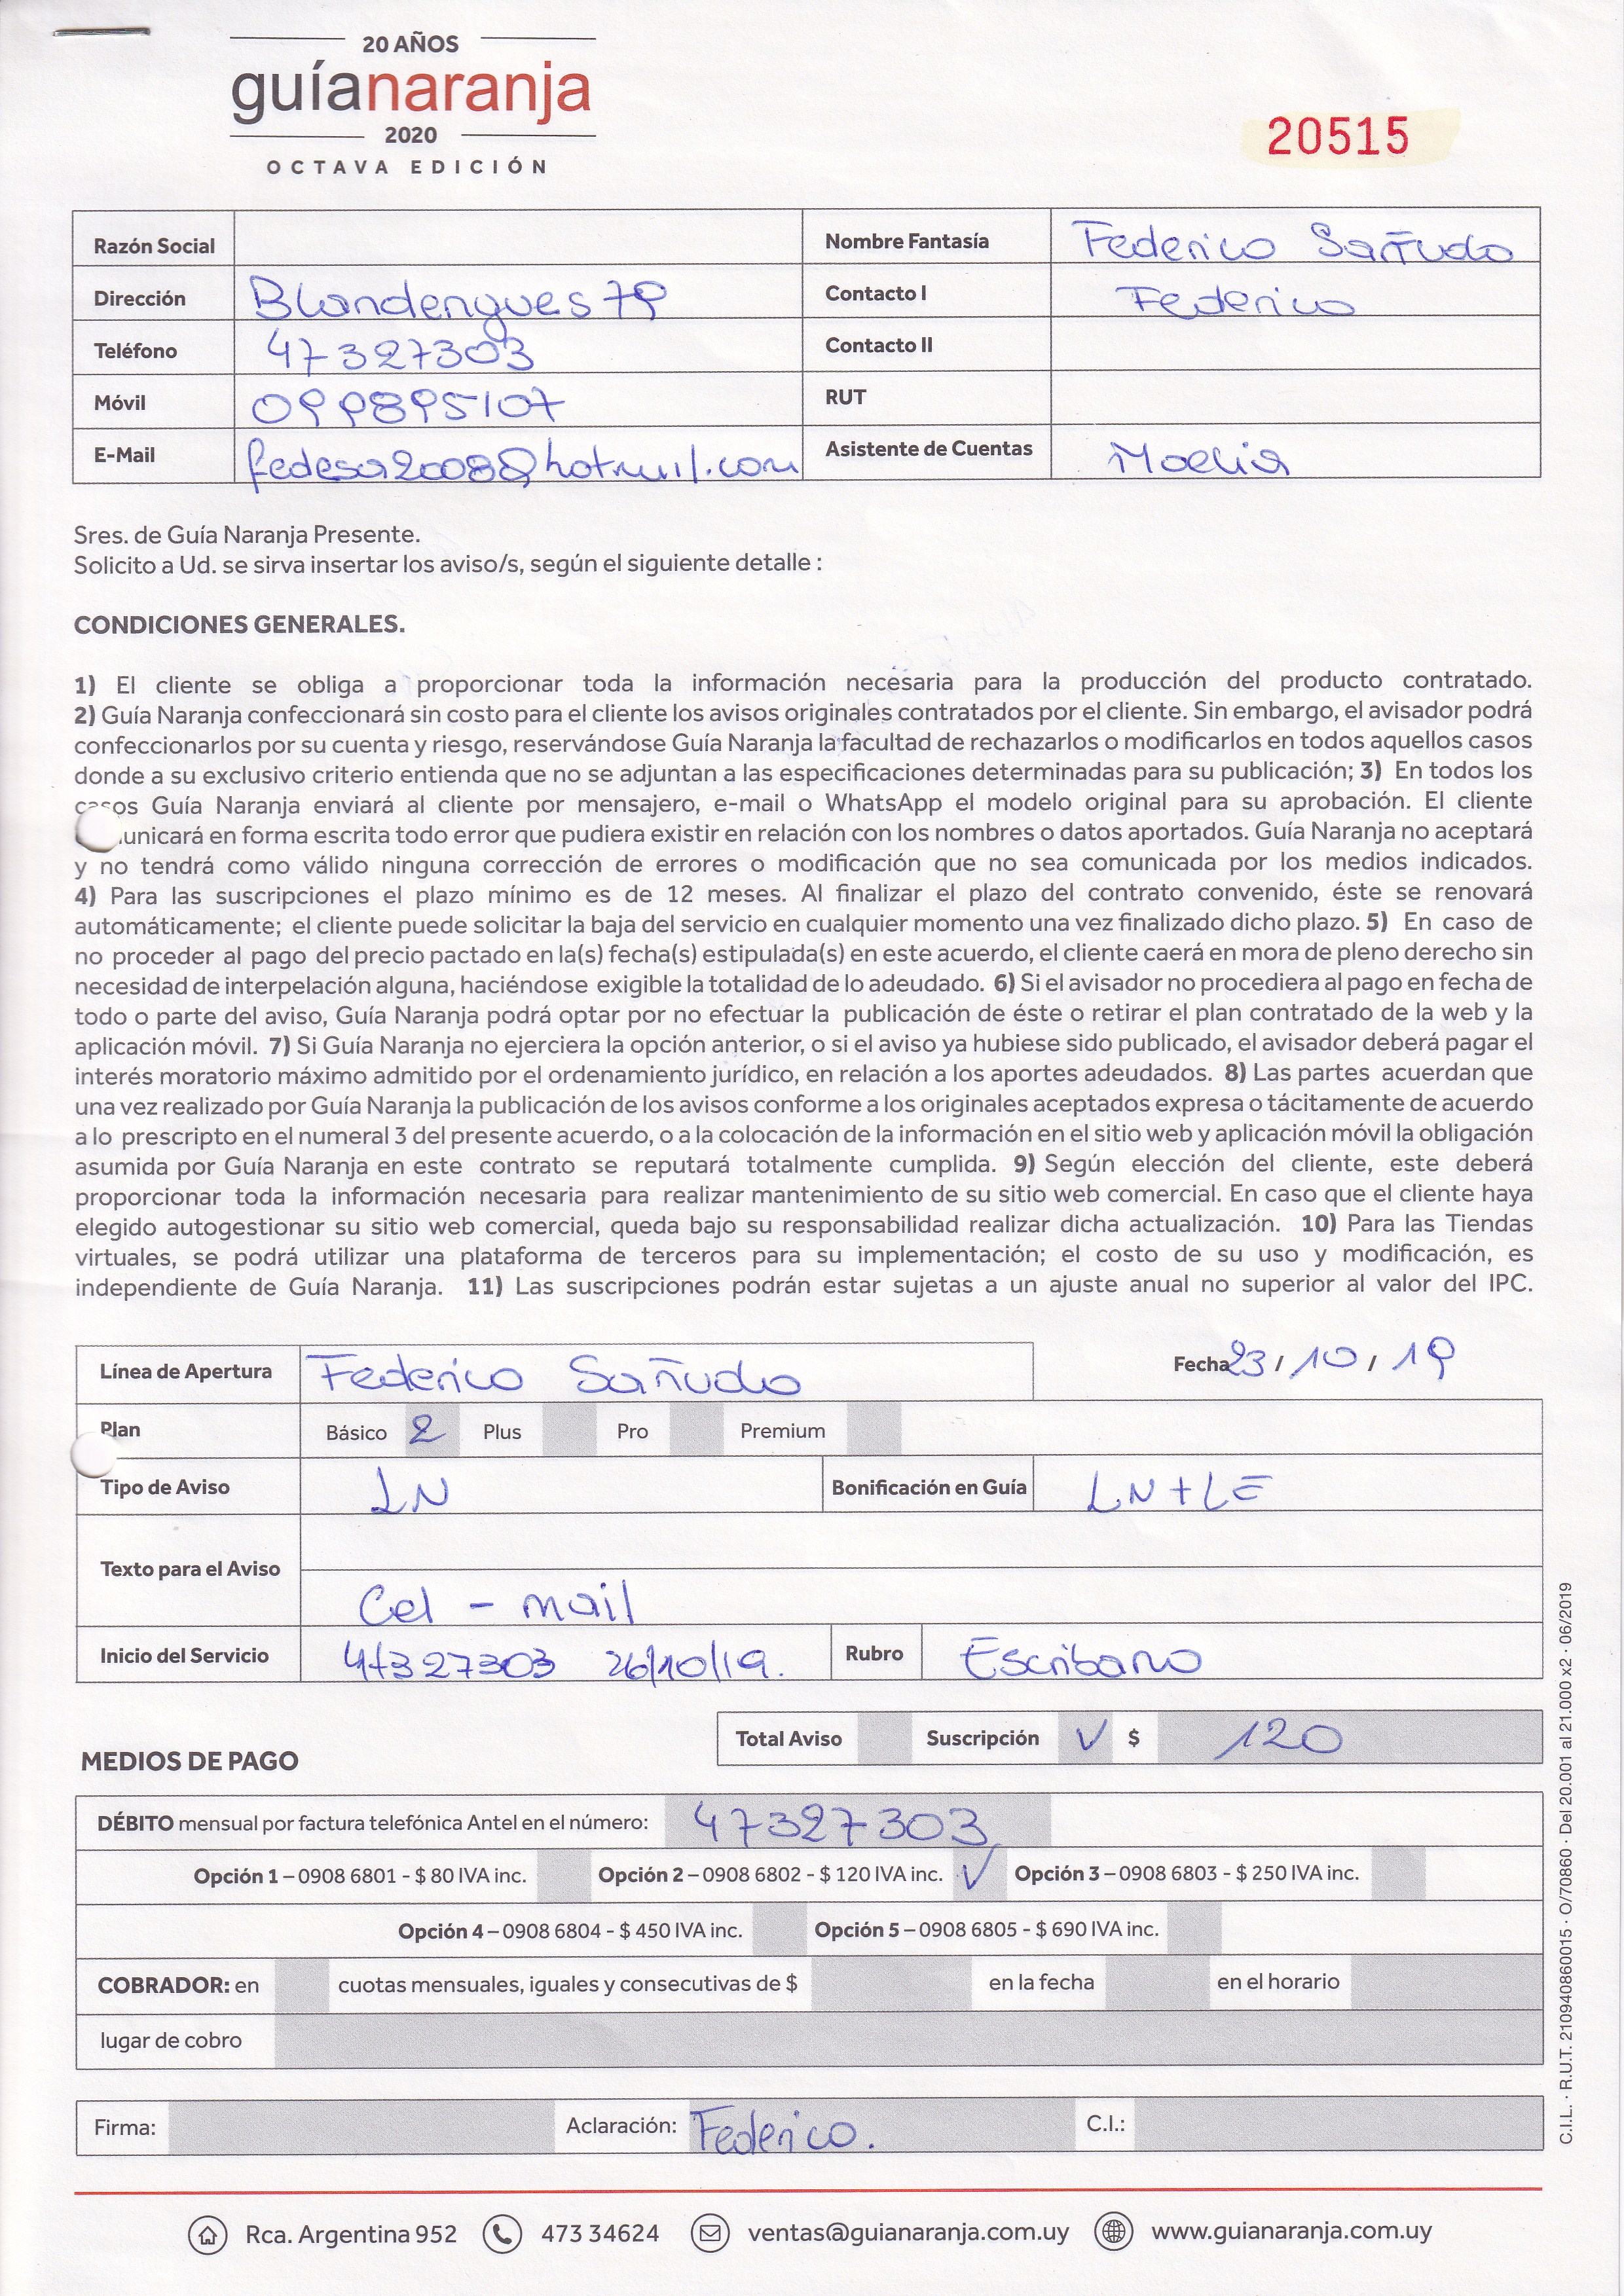 20 AÑOS
guíanaranja
2020
OCTAVA EDICIÓN
20515
Razón Social
Nombre Fantasía Federico Sañudo
Dirección Blandengues 79
Contacto I Federico
Teléfono 47327303
Contacto II
Móvil 099895107
RUT
E-Mail fedesa2008@hotmail.com
Asistente de Cuentas
Sres. de Guía Naranja Presente.
Solicito a Ud. se sirva insertar los aviso/s, según el siguiente detalle :
CONDICIONES GENERALES.
1) El cliente se obliga a proporcionar toda la información necesaria para la producción del producto contratado.
2) Guía Naranja confeccionará sin costo para el cliente los avisos originales contratados por el cliente. Sin embargo, el avisador podrá
confeccionarlos por su cuenta y riesgo, reservándose Guía Naranja la facultad de rechazarlos o modificarlos en todos aquellos casos
donde a su exclusivo criterio entienda que no se adjuntan a las especificaciones determinadas para su publicación; 3) En todos los
casos Guía Naranja enviará al cliente por mensajero, e-mail o WhatsApp el modelo original para su aprobación. El cliente
unicará en forma escrita todo error que pudiera existir en relación con los nombres o datos aportados. Guía Naranja no aceptará
y no tendrá como válido ninguna corrección de errores o modificación que no sea comunicada por los medios indicados.
4) Para las suscripciones el plazo mínimo es de 12 meses. Al finalizar el plazo del contrato convenido, éste se renovará
automáticamente; el cliente puede solicitar la baja del servicio en cualquier momento una vez finalizado dicho plazo. 5) En caso de
no proceder al pago del precio pactado en la(s) fecha(s) estipulada(s) en este acuerdo, el cliente caerá en mora de pleno derecho sin
necesidad de interpelación alguna, haciéndose exigible la totalidad de lo adeudado. 6) Si el avisador no procediera al pago en fecha de
todo o parte del aviso, Guía Naranja podrá optar por no efectuar la publicación de éste o retirar el plan contratado de la web y la
aplicación móvil. 7) Si Guía Naranja no ejerciera la opción anterior, o si el aviso ya hubiese sido publicado, el avisador deberá pagar el
interés moratorio máximo admitido por el ordenamiento jurídico, en relación a los aportes adeudados. 8) Las partes acuerdan que
una vez realizado por Guía Naranja la publicación de los avisos conforme a los originales aceptados expresa o tácitamente de acuerdo
a lo prescripto en el numeral 3 del presente acuerdo, o a la colocación de la información en el sitio web y aplicación móvil la obligación
asumida por Guía Naranja en este contrato se reputará totalmente cumplida. 9) Según elección del cliente, este deberá
proporcionar toda la información necesaria para realizar mantenimiento de su sitio web comercial. En caso que el cliente haya
elegido autogestionar su sitio web comercial, queda bajo su responsabilidad realizar dicha actualización. 10) Para las Tiendas
virtuales, se podrá utilizar una plataforma de terceros para su implementación; el costo de su uso y modificación, es
independiente de Guía Naranja. 11) Las suscripciones podrán estar sujetas a un ajuste anual no superior al valor del IPC.
Línea de Apertura Federico Sañudo
Fecha 23 / 10 / 19
Plan Básico 2 Plus Pro Premium
Tipo de Aviso LN Bonificación en Guía LN + LE
Texto para el Aviso
Cel - mail
Inicio del Servicio 47327303 26/10/19. Rubro Escribano
Total Aviso Suscripción ✓ $ 120
MEDIOS DE PAGO
DÉBITO mensual por factura telefónica Antel en el número: 47327303
Opción 1 – 0908 6801 - $ 80 IVA inc. Opción 2 – 0908 6802 - $ 120 IVA inc. ✓ Opción 3 – 0908 6803 - $ 250 IVA inc.
Opción 4 – 0908 6804 - $ 450 IVA inc. Opción 5 – 0908 6805 - $ 690 IVA inc.
COBRADOR: en cuotas mensuales, iguales y consecutivas de $ en la fecha en el horario
lugar de cobro
Firma: Aclaración: Federico. C.I.:
Rca. Argentina 952 473 34624 ventas@guianaranja.com.uy www.guianaranja.com.uy
C.I.L. · R.U.T. 210940860015 · O/70860 · Del 20.001 al 21.000 x2 · 06/2019